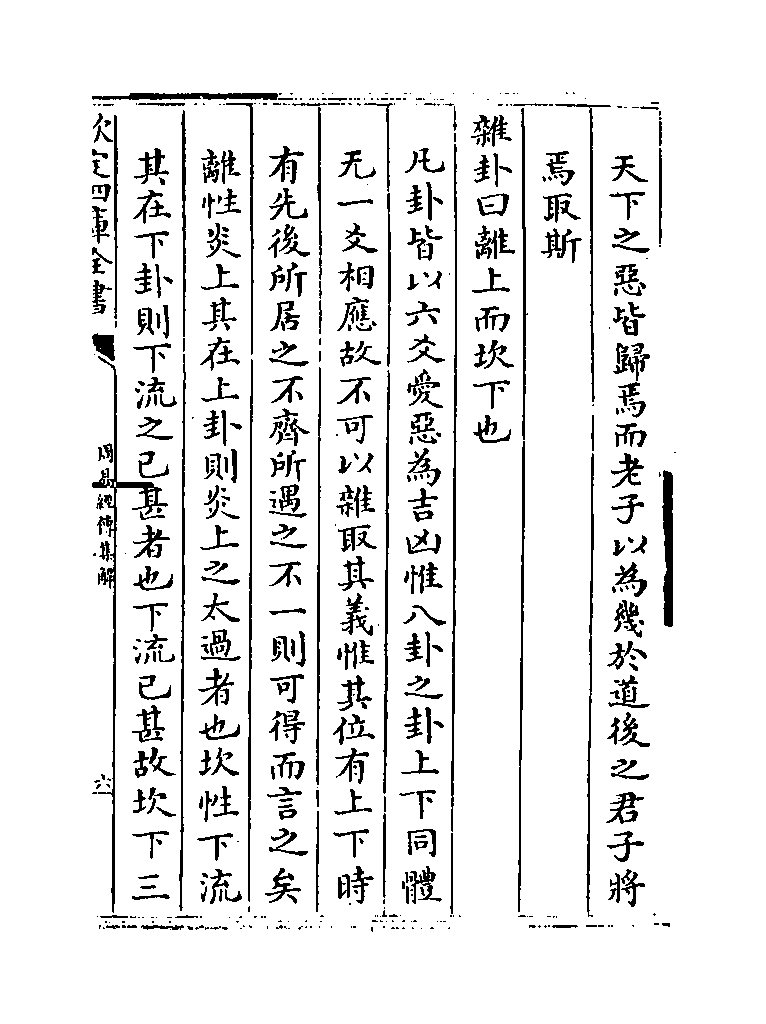 天下之惡皆歸焉而老子以為幾於道後之君子將
焉取斯
雜卦曰離上而坎下也
凡卦皆以六爻愛惡為吉凶惟八卦之卦上下同體
无一爻相應故不可以雜取其義惟其位有上下時
有先後所居之不齊所遇之不一則可得而言之矣
離性炎上其在上卦則炎上之太過者也坎性下流
其在下卦則下流之已甚者也下流已甚故坎下三
欽定四庫全書
周易經傳集解
六